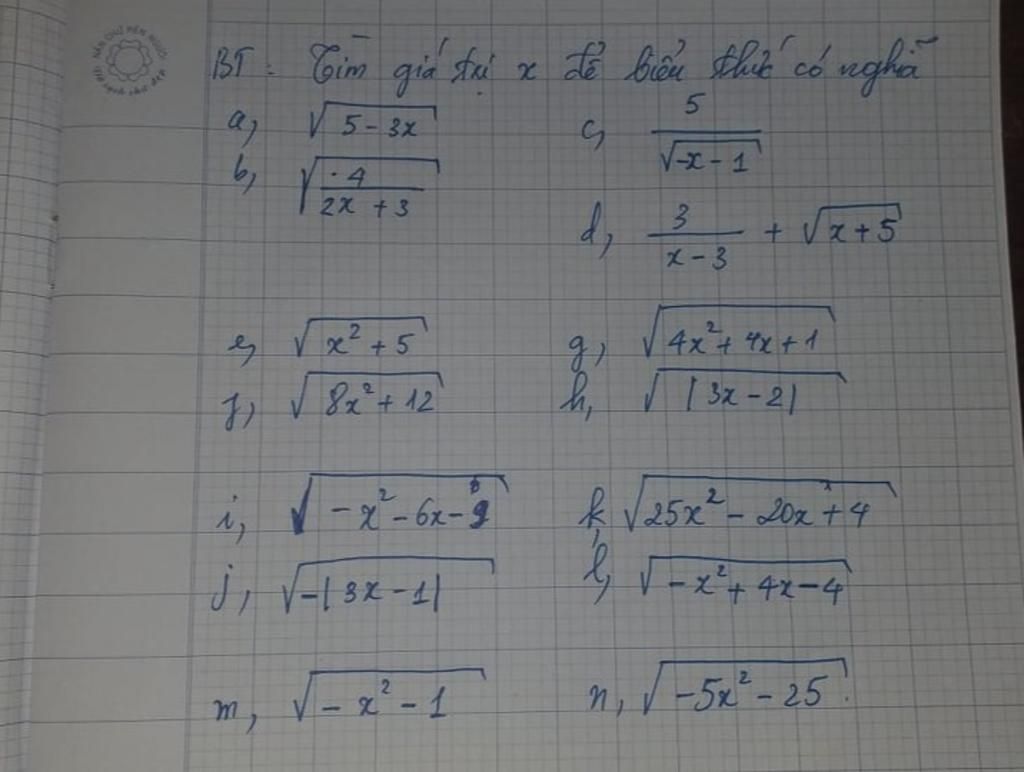 BT: Tìm giá trị x để biểu thức có nghĩa
a, √(5 - 3x)
c, 5/√(-x - 1)
b, √(4/(2x + 3))
d, 3/(x - 3) + √(x + 5)
e, √(x² + 5)
g, √(4x² + 4x + 1)
f, √(8x² + 12)
h, √|3x - 2|
i, √(-x² - 6x - 9)
k, √(25x² - 20x + 4)
j, √(-|3x - 1|)
l, √(-x² + 4x - 4)
m, √(-x² - 1)
n, √(-5x² - 25)